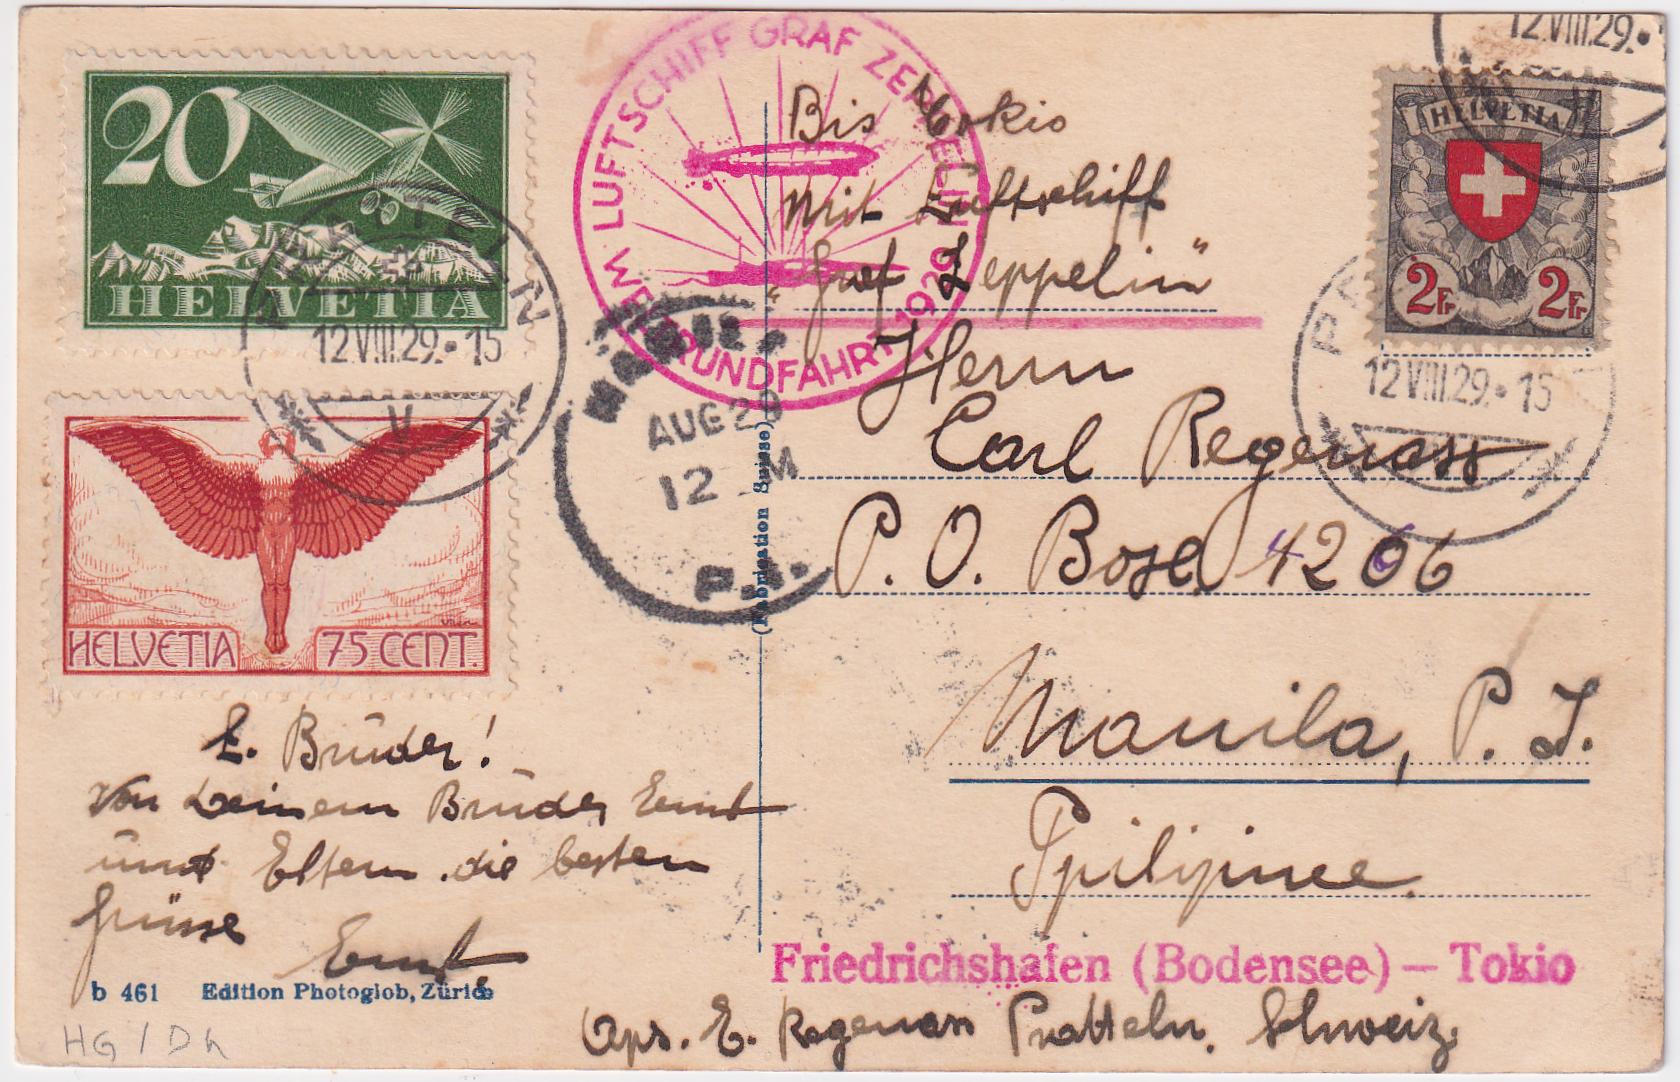 20
HELVETIA
PRATTELN
12.VIII.29.-15
V
HELVETIA 75 CENT.
LUFTSCHIFF GRAF ZEPPELIN
WELTRUNDFAHRT 1929
AUG 29
12 M
P.I.
12.VIII.29.
HELVETIA
2Fr 2Fr
12.VIII.29.-15
Bis Tokio
mit Luftschiff
"Graf Zeppelin"
Herrn
Carl Regenass
P. O. Box 4206
Manila, P. I.
Ppilipinee.
L. Brüder!
Von Deinem Brüder Ernst
ünd Eltern die besten
Grüsse
Ernst.
(Fabrication Suisse)
b 461 Edition Photoglob, Zürich
Friedrichshafen (Bodensee) — Tokio
Aps. E. Regenass Pratteln. Schweiz.
HG / D h